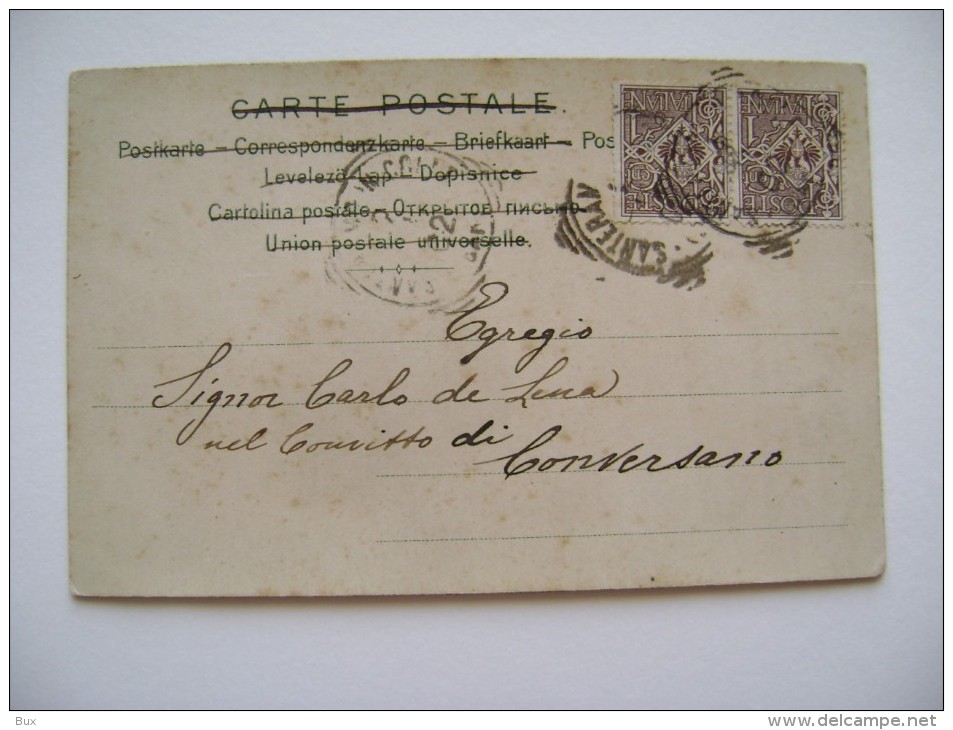 CARTE POSTALE.
Postkarte – Correspondenzkarte – Briefkaart – Pos
Levelező Lap – Dopisnice
Cartolina postale – Открытое письмо
Union postale universelle.
SANTERAM
Egregio
Signor Carlo de Luca
nel Convitto di
Conversano
Bux
www.delcampe.net